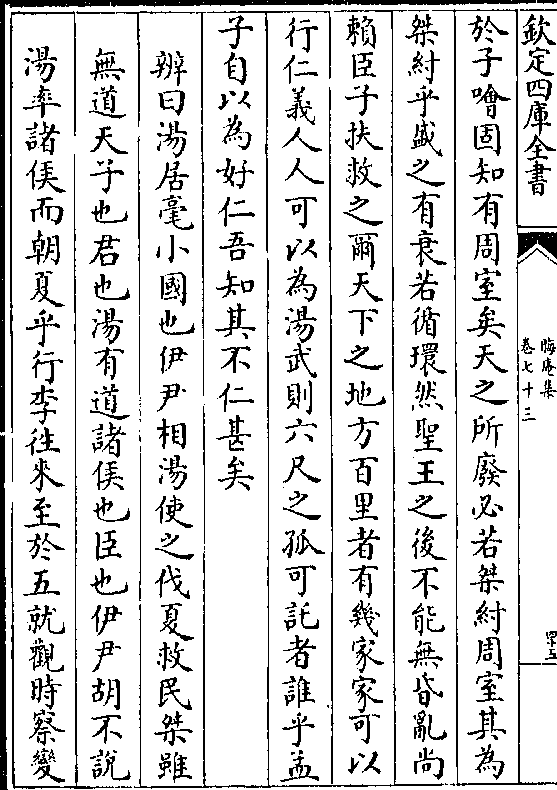 欽定四庫全書
晦庵集
卷七十三
四五
於子噲固知有周室矣天之所廢必若桀紂周室其為
桀紂乎盛之有衰若循環然聖王之後不能無昏亂尚
賴臣子扶救之爾天下之地方百里者有幾家家可以
行仁義人人可以為湯武則六尺之孤可託者誰乎孟
子自以為好仁吾知其不仁甚矣
辨曰湯居亳小國也伊尹相湯使之伐夏救民桀雖
無道天子也君也湯有道諸侯也臣也伊尹胡不說
湯率諸侯而朝夏乎行李往來至於五就觀時察變